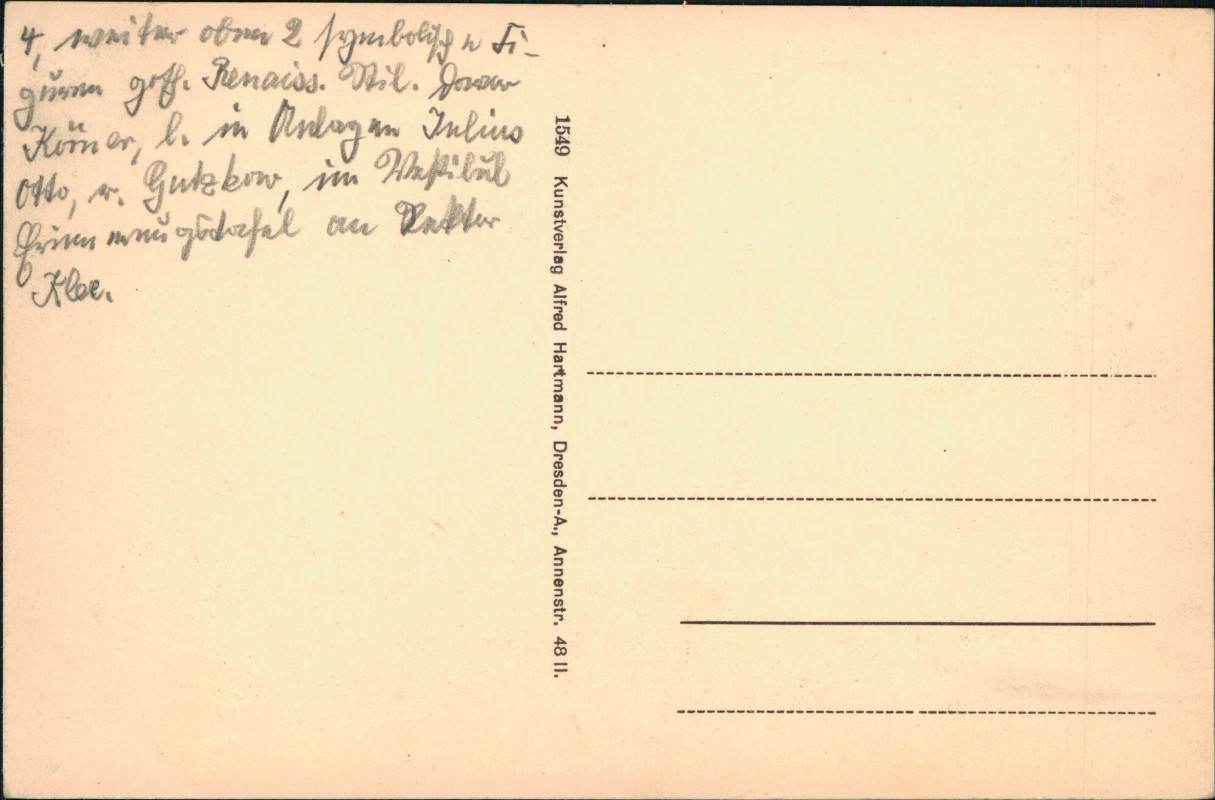 4, weiter oben 2 symbolische Fi-
guren goth. Renaiss. Stil. Davor
Körner, l. in Anlagen Julius
Otto, r. Gutzkow, im Vestibül
Erinnerungstafel an Rektor
Klee.
1549 Kunstverlag Alfred Hartmann, Dresden-A., Annenstr. 48 II.